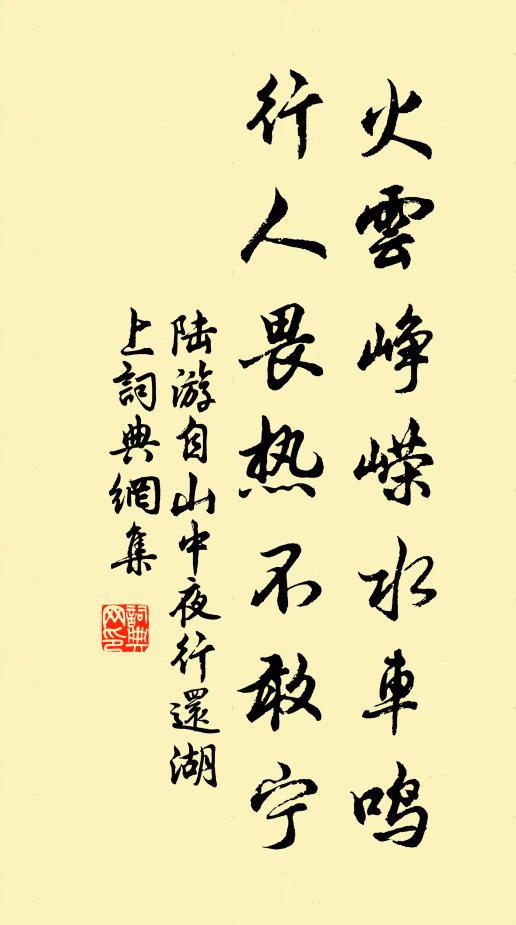 火雲峥嵘水車鸣
行人畏热不敢宁
陆游自山中夜行還湖
上詞典網集
詞典網印